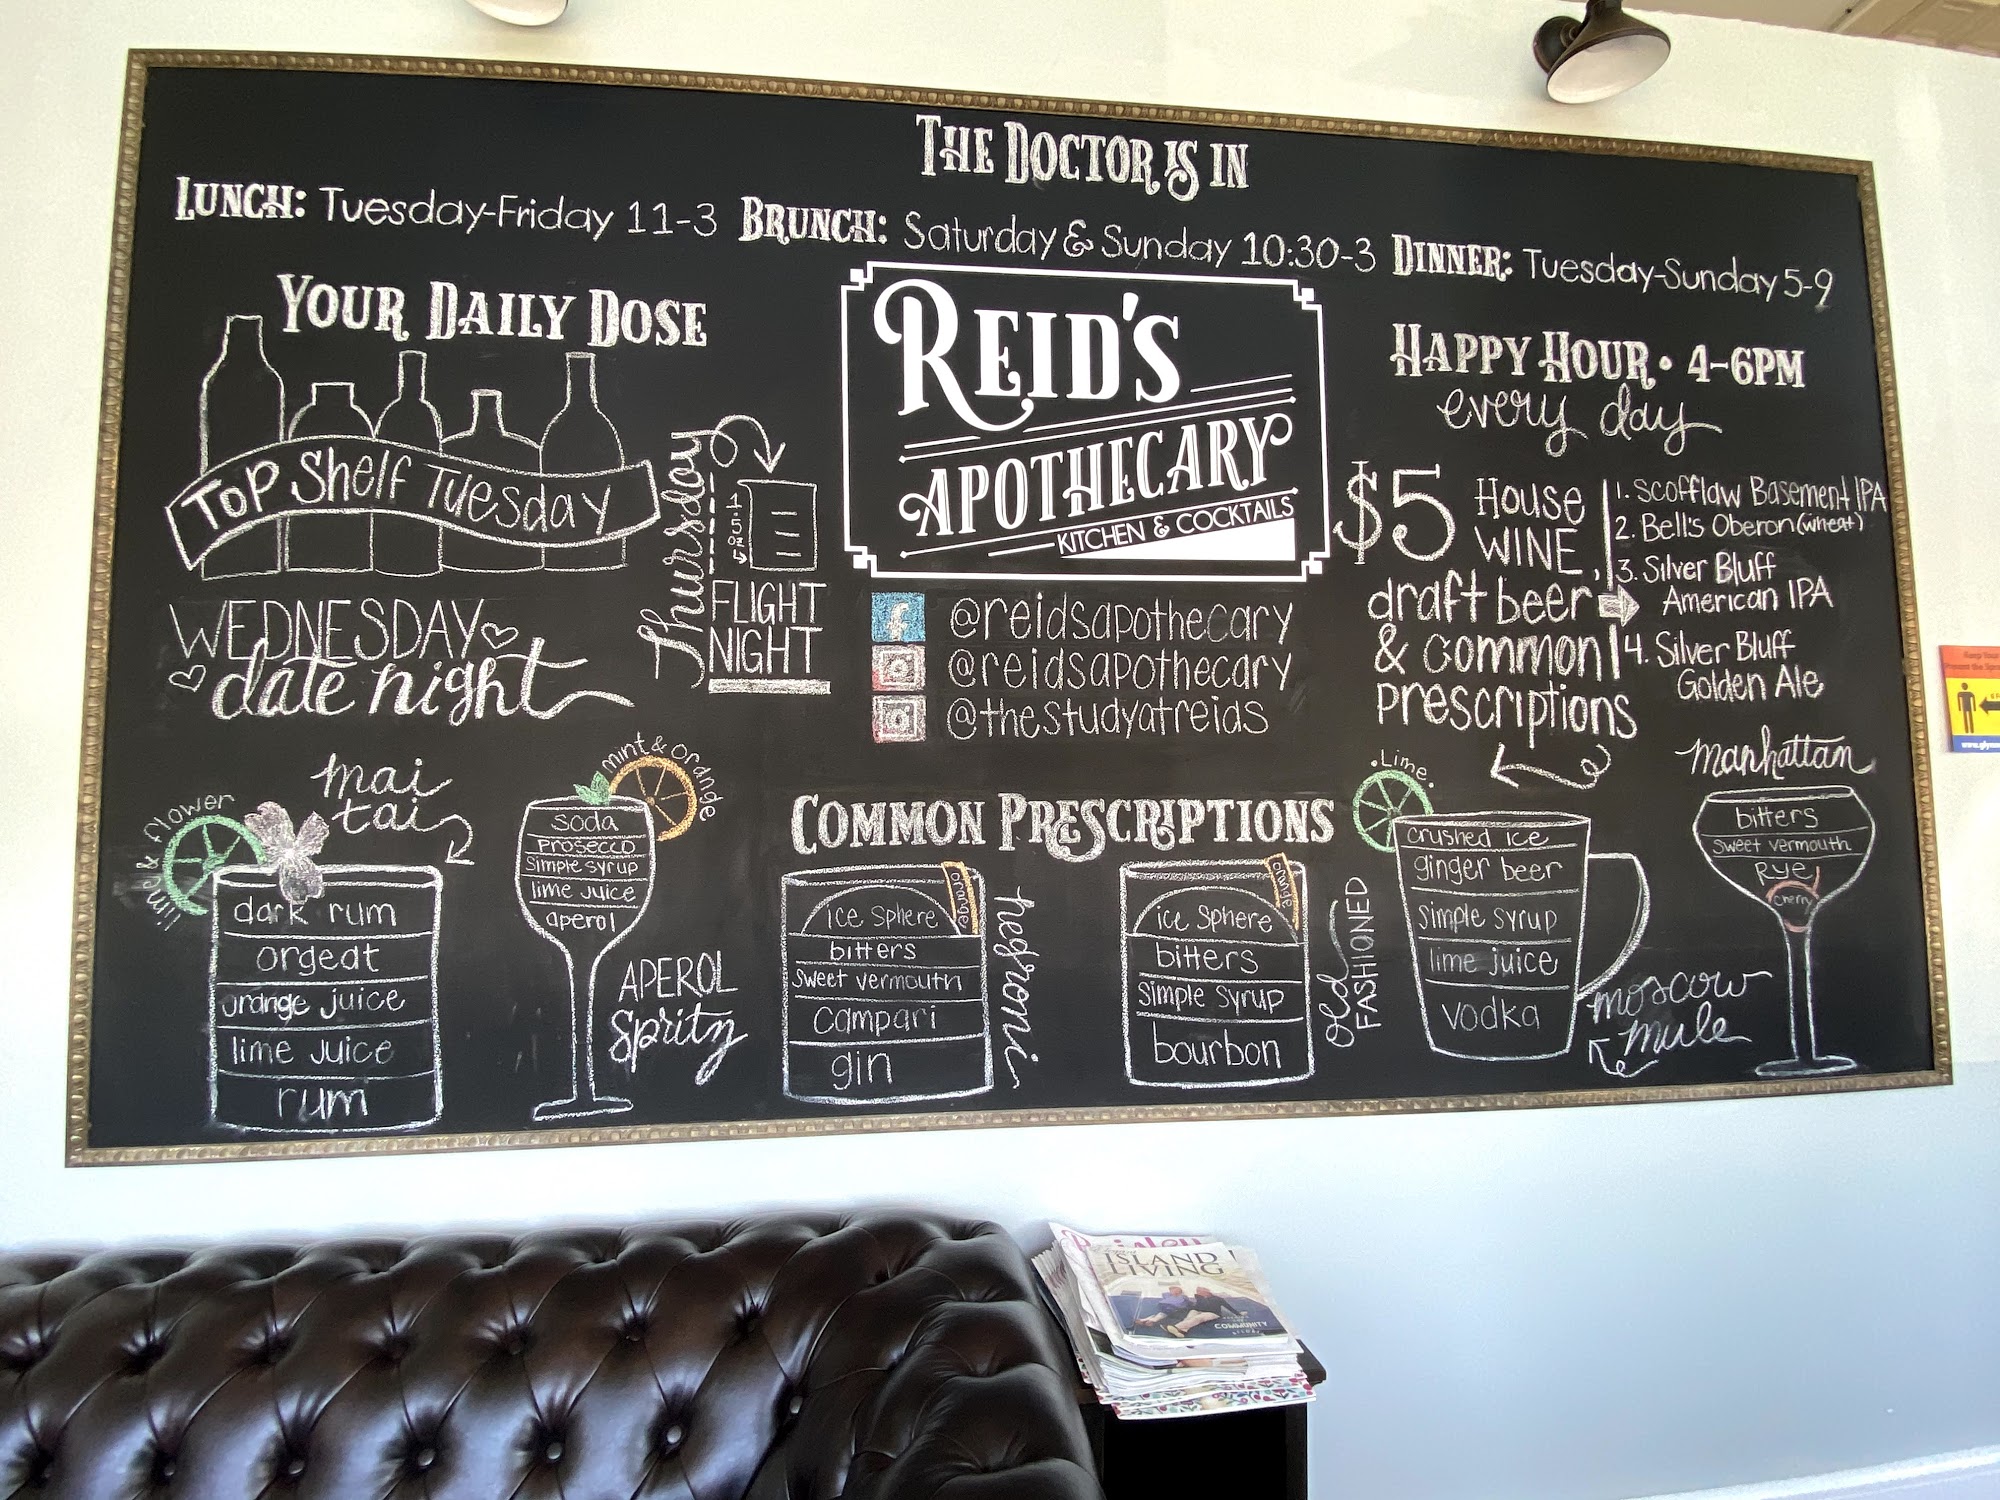 THE DOCTOR IS IN
LUNCH: Tuesday-Friday 11-3 BRUNCH: Saturday & Sunday 10:30-3 DINNER: Tuesday-Sunday 5-9
YOUR DAILY DOSE
TOP Shelf Tuesday
WEDNESDAY
date night
Thursday
1.5 oz
FLIGHT
NIGHT
REID'S
APOTHECARY
KITCHEN & COCKTAILS
@reidsapothecary
@reidsapothecary
@thestudyatreids
HAPPY HOUR • 4-6PM
every day
$5 HOUSE
WINE,
draft beer
& common
prescriptions
1. Scofflaw Basement IPA
2. Bell's Oberon (wheat)
3. Silver Bluff
American IPA
4. Silver Bluff
Golden Ale
COMMON PRESCRIPTIONS
mai
tai
lime & flower
dark rum
orgeat
orange juice
lime juice
rum
mint & orange
soda
prosecco
simple syrup
lime juice
aperol
APEROL
spritz
orange
ice sphere
bitters
sweet vermouth
campari
gin
negroni
orange
ice sphere
bitters
simple syrup
bourbon
old
FASHIONED
• Lime •
crushed ice
ginger beer
simple syrup
lime juice
vodka
moscow
mule
manhattan
bitters
sweet vermouth
Rye
cherry
ISLAND
LIVING
COMMUNITY